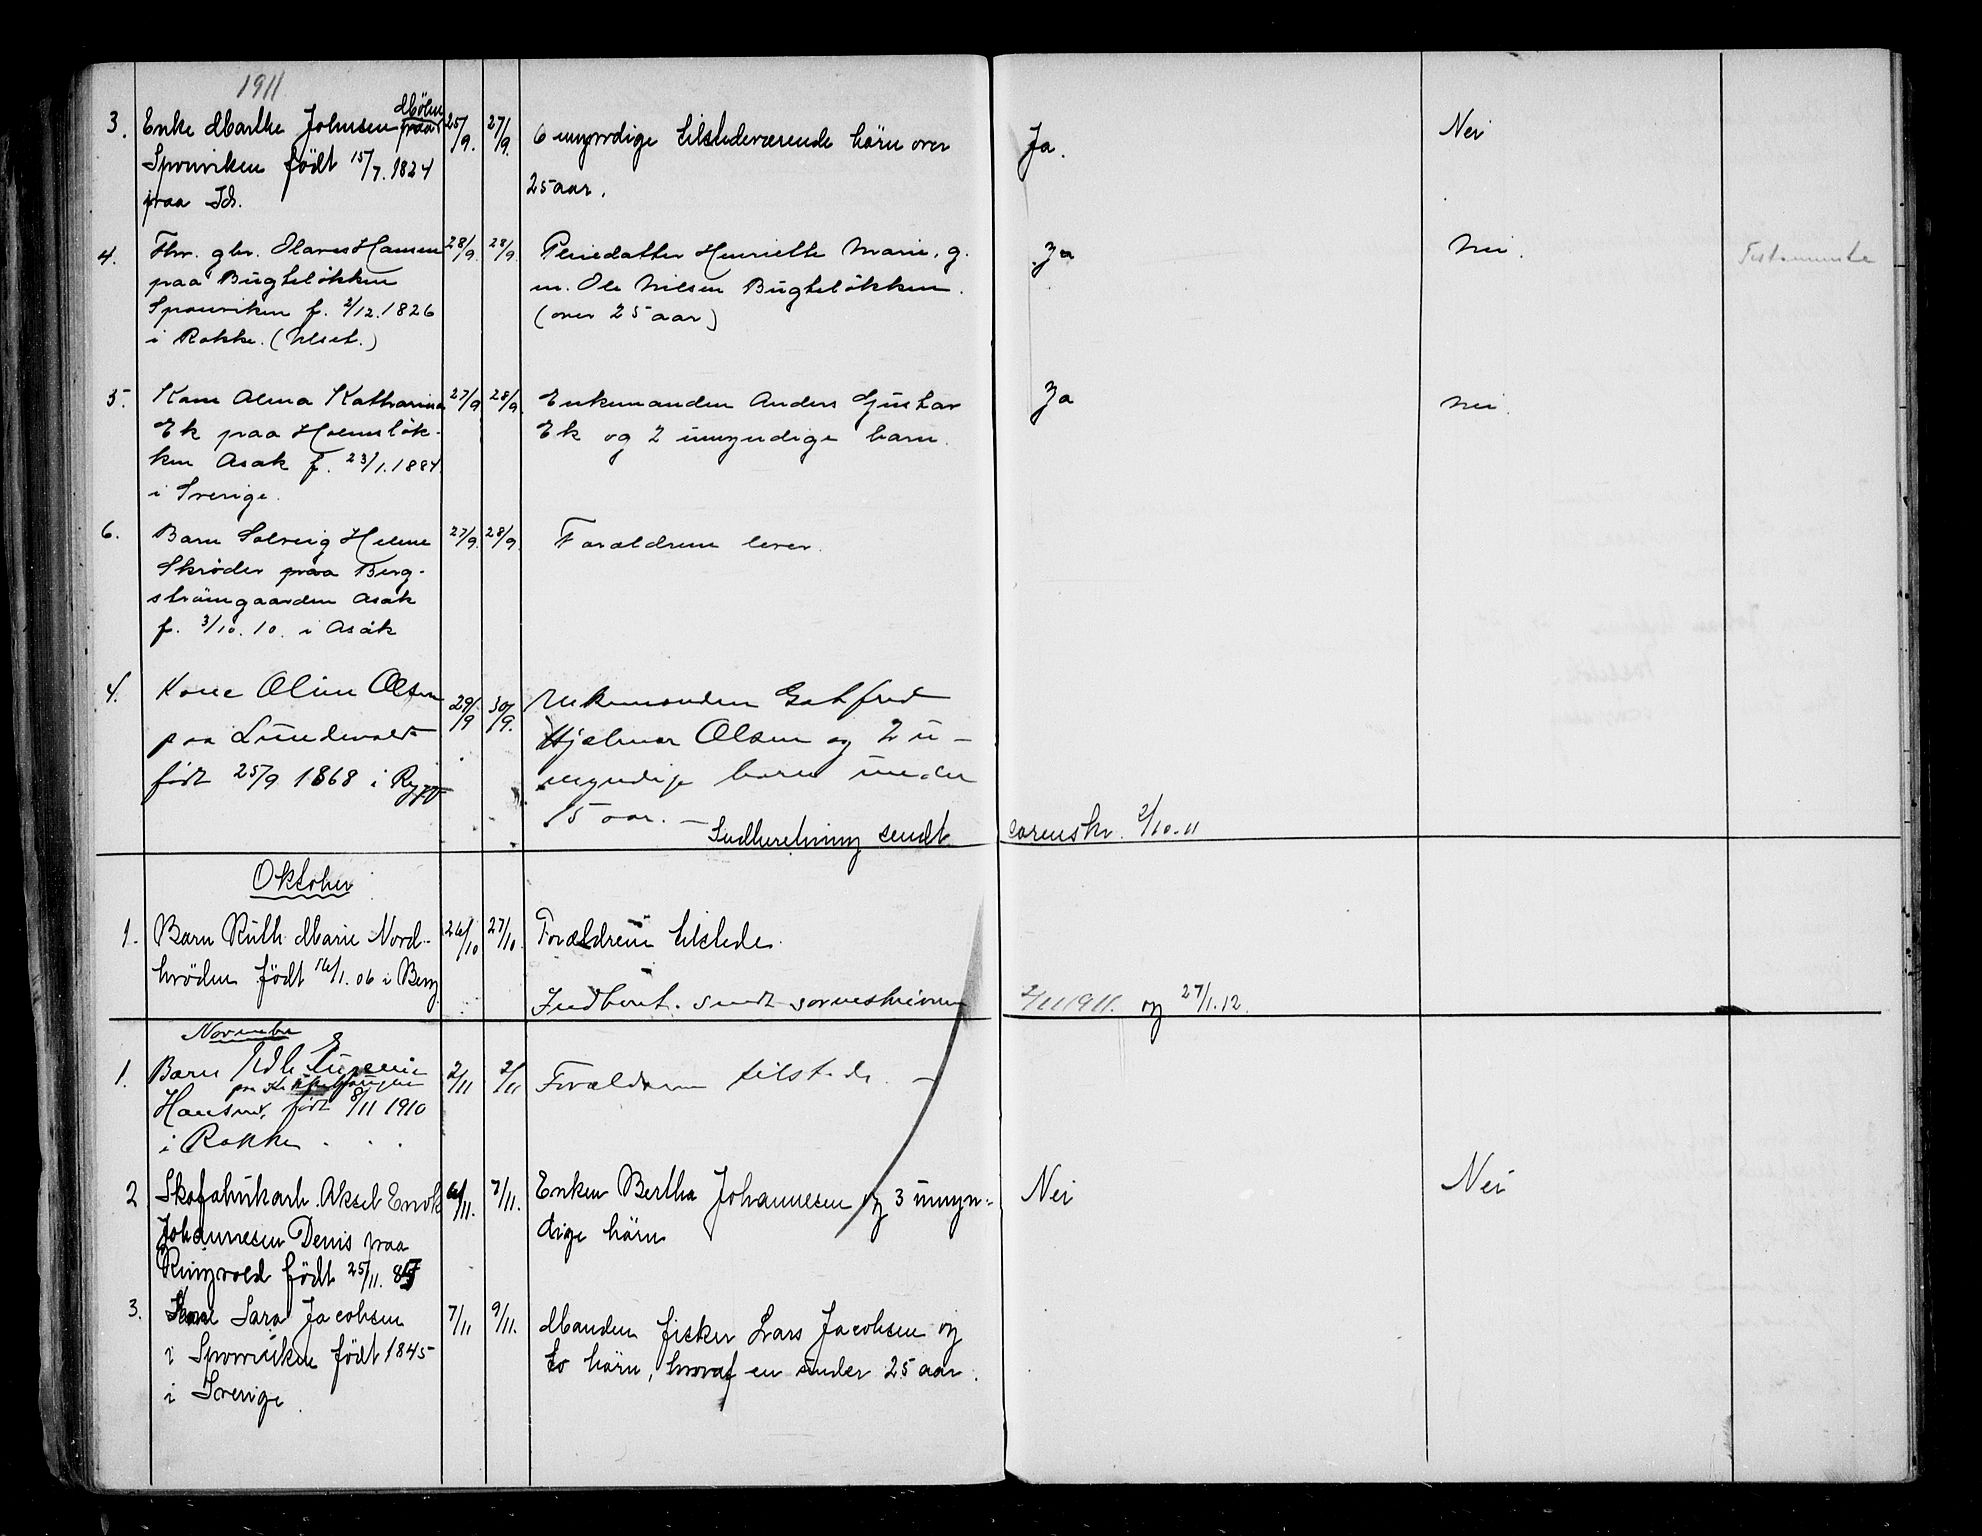 1911
3. Enke Marthe Johnsen Mölen paa 25/9. 27/9. 6 myndige tilstedeværende börn over Ja. Nei
Sponviken födt 15/7. 1824 25 aar.
paa Id.
4. Fhv. gbr. Olaves Hansen 28/9. 28/9. Pleiedatter Henriette Marie, g. Ja Nei. Testamente
paa Bugteløkken m. Ole Nilsen Bugteløkken.
Sponviken f. 2/12. 1826 (over 25 aar)
i Rokke.
5. Kone Alma Katharina 27/9 28/9. Enkemanden Anders Gustav Ja Nei.
Ek paa Holmsløk- Ek og 2 umyndige barn.
ken Asak f. 23/1. 1884.
i Sverige.
6. Barn Solveig Helene 27/9. 28/9. Forældrene lever.
Skrøder paa Berg-
strømgaarden Asak
f. 3/10. 10. i Asak
4. Kone Oline Olsen 29/9 30/9. Enkemanden Gotfred
paa Lundevold Hjalmar Olsen og 2 u-
født 25/9 1868 i Rygge myndige barn under
15 aar. –
Indberetning sendt sorenskr. 2/10-11
Oktober
1. Barn Ruth Marie Nord- 26/10 27/10. Forældrene tilstede.
bröden födt 16/1. 06 i Berg
Indberet. sendt sorenskriveren 2/11 1911. og 27/1. 12.
November
1. Barn Edle Eugenie 2/11 2/11 Forældrene tilstede. –
paa
Hansen, født 8/11 1910
i Rokke
2 Skofabrikarb. Aksel Envk 6/11. 7/11. Enken Bertha Johannesen og 3 umyn- Nei Nei
Johannesen Denis paa dige börn
Ringvold födt 25/11.
3. Kone Sara Jacobsen 7/11 9/11. Manden fisker Lars Jacobsen og
i Sponviken födt 1845 to börn, hvoraf en under 25 aar.
i Sverige.